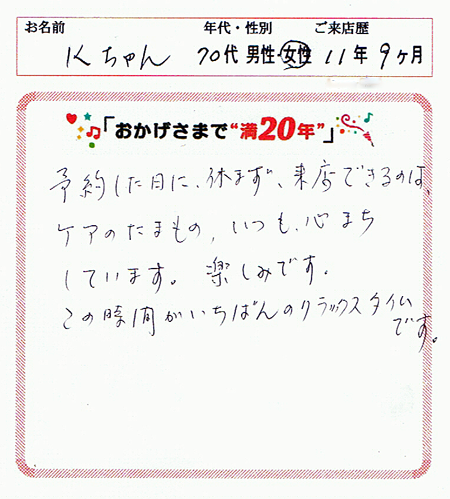 お名前 年代・性別 ご来店歴
Kちゃん 70代 男性・女性 11年9ヶ月
「おかげさまで“満20年”」
予約した日に、休まず、来店できるのは、
ケアのたまもの、いつも、心まち
しています。楽しみです。
この時間がいちばんのリラックスタイム
です。